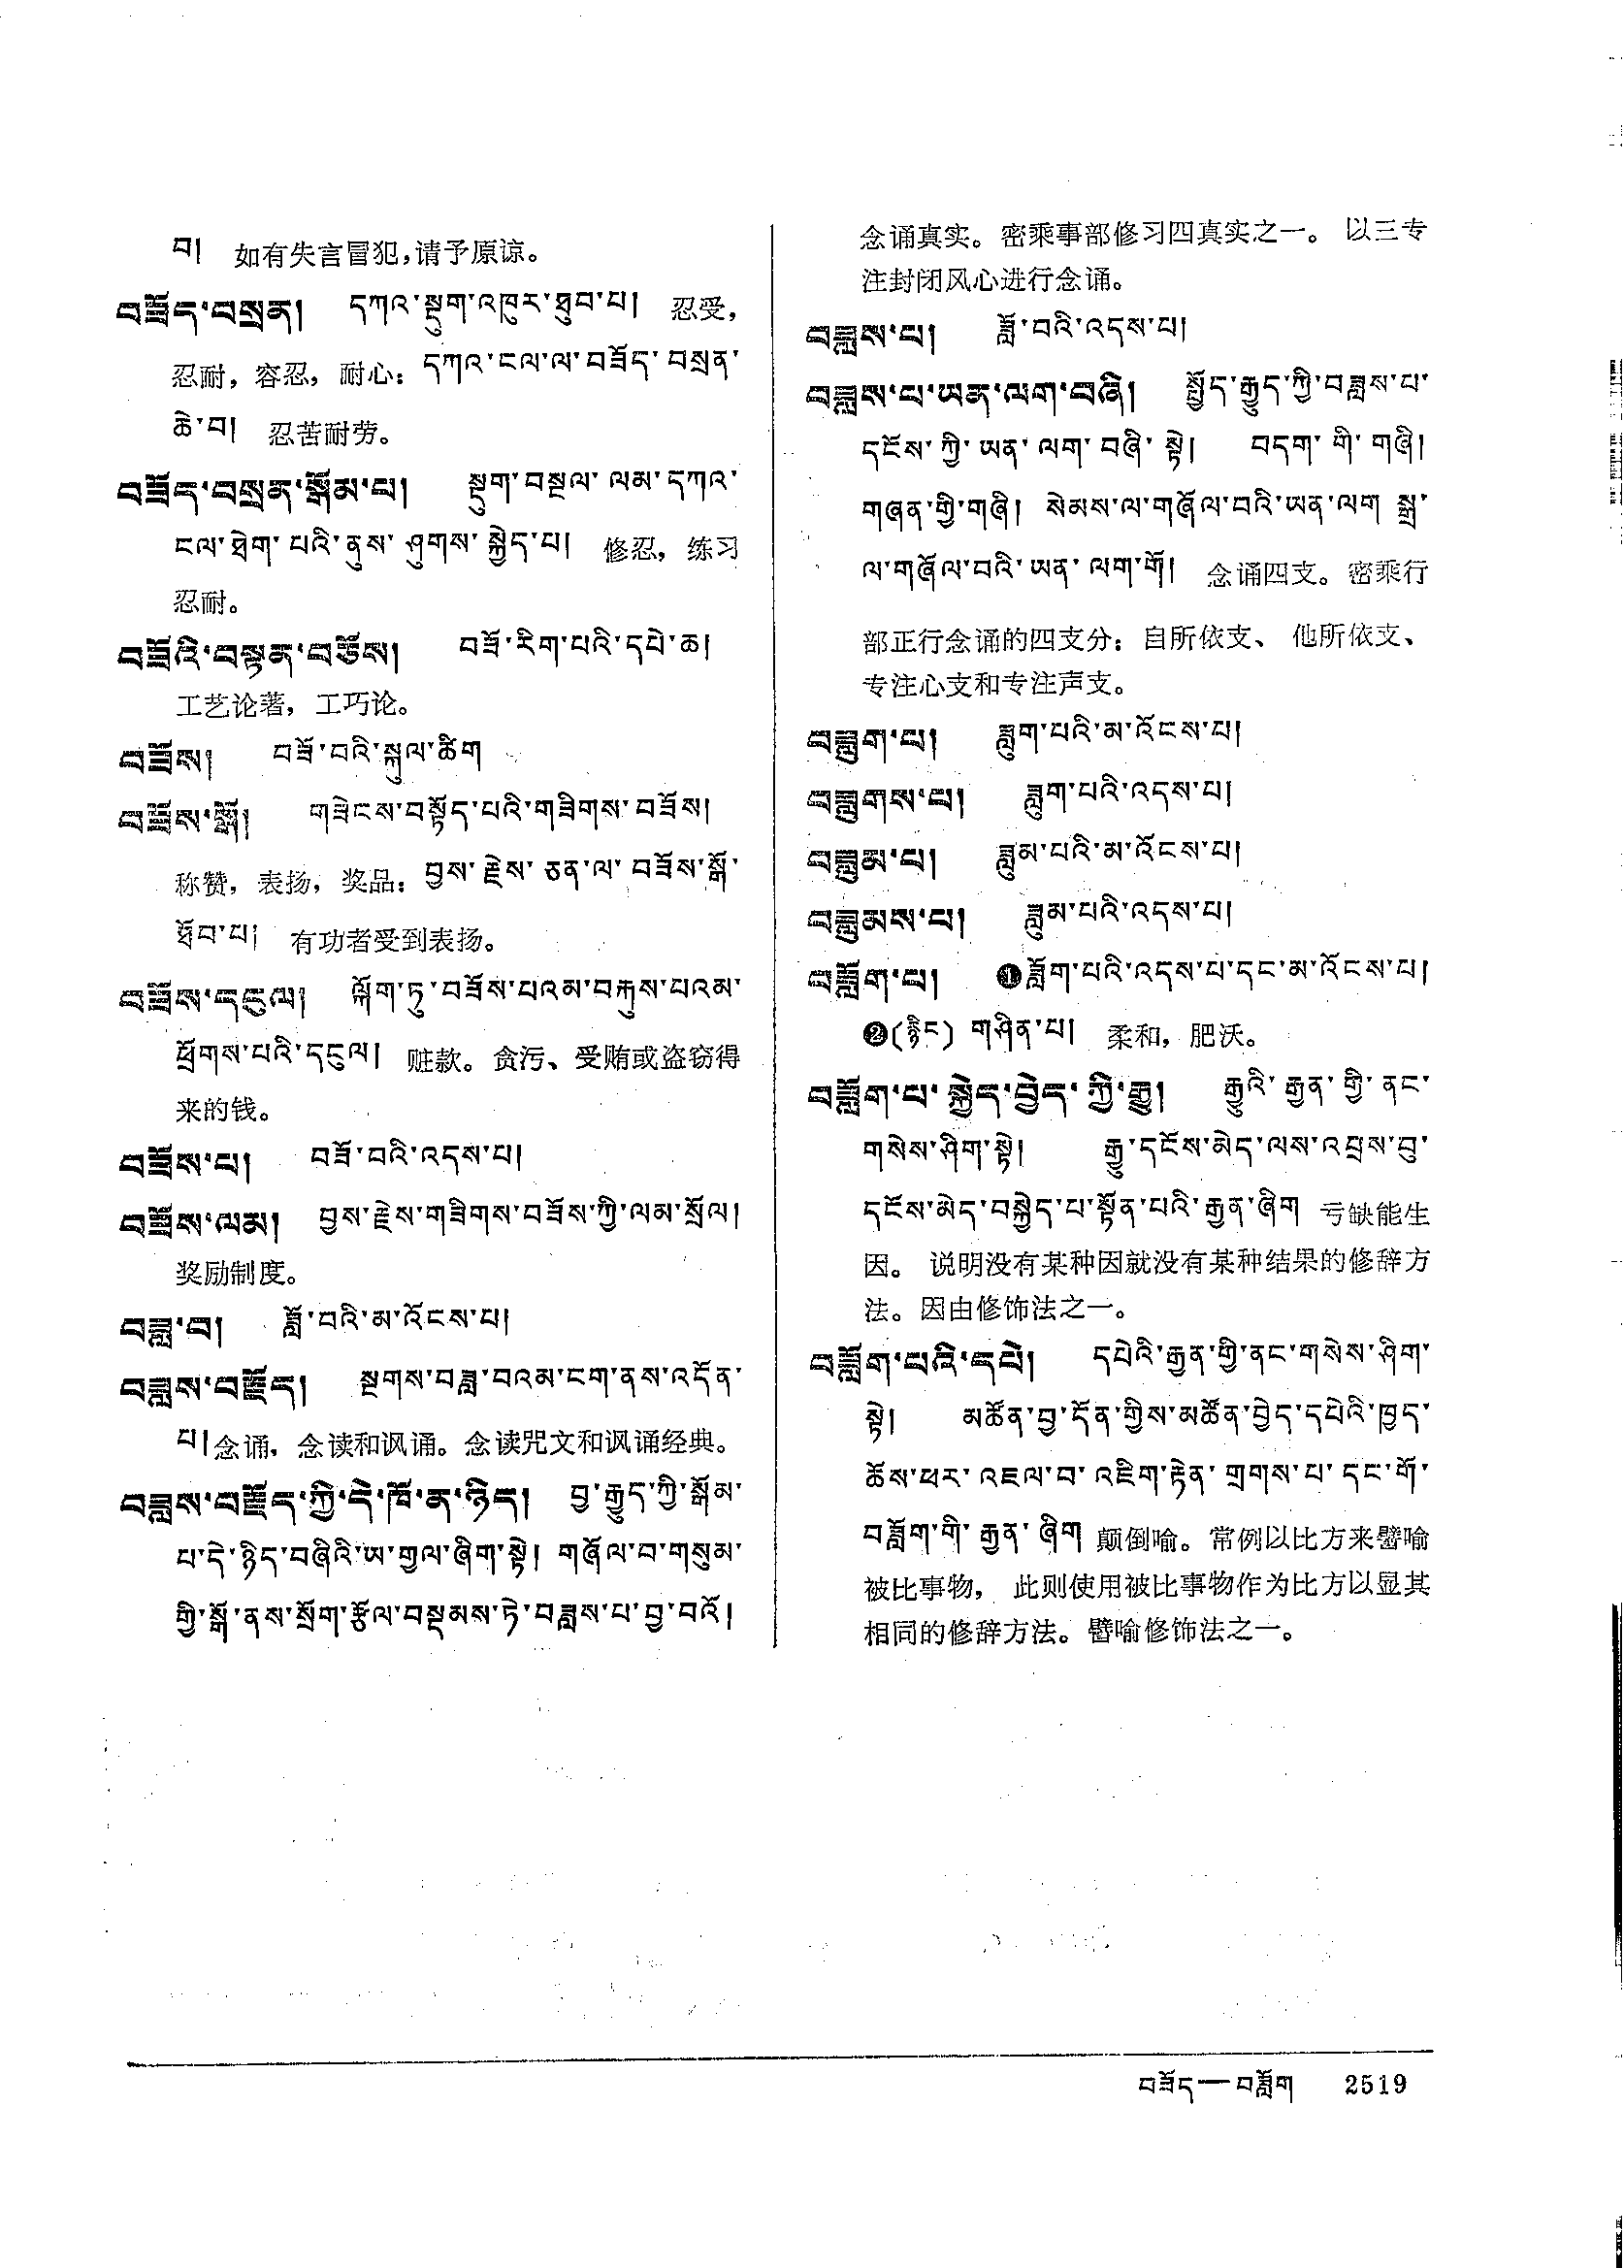 བ།  如有失言冒犯,请予原谅。
བཟོད་བསྲན།  དཀའ་སྡུག་འཁུར་ཐུབ་པ།  忍受,
忍耐，容忍，耐心：དཀའ་ངལ་ལ་བཟོད་བསྲན་
ཆེ་བ།  忍苦耐劳。
བཟོད་བསྲན་སྒོམ་པ།  སྡུག་བསྔལ་ལམ་དཀའ་
ངལ་ཐེག་པའི་ནུས་ཤུགས་སྐྱེད་པ།  修忍，练习
忍耐。
བཟོའི་བསྟན་བཅོས།  བཟོ་རིག་པའི་དཔེ་ཆ།
工艺论著，工巧论。
བཟོས།  བཟོ་བའི་སྐུལ་ཚིག
བཟོས་སྒོ།  གཟེངས་བསྟོད་པའི་གཟིགས་བཟོས།
称赞，表扬，奖品：བྱས་རྗེས་ཅན་ལ་བཟོས་སྒོ་
ཐོབ་པ།  有功者受到表扬。
བཟོས་དངུལ།  ལྐོག་ཏུ་བཟོས་པའམ་བརྐུས་པའམ་
ཕྲོགས་པའི་དངུལ།  赃款。贪污、受贿或盗窃得
来的钱。
བཟོས་པ།  བཟོ་བའི་འདས་པ།
བཟོས་ལམ།  བྱས་རྗེས་གཟིགས་བཟོས་ཀྱི་ལམ་སྲོལ།
奖励制度。
བཟླ་བ།  ཟློ་བའི་མ་འོངས་པ།
བཟླས་བརྗོད།  སྔགས་བཟླ་བའམ་ངག་ནས་འདོན་
པ།念诵，念读和讽诵。念读咒文和讽诵经典。
བཟླས་བརྗོད་ཀྱི་དེ་ཁོ་ན་ཉིད།  བྱ་རྒྱུད་ཀྱི་སྒོམ་
པ་དེ་ཉིད་བཞིའི་ཡ་གྱལ་ཞིག་སྟེ།  གཞོལ་བ་གསུམ་
གྱི་སྒོ་ནས་སྲོག་རྩོལ་བསྡམས་ཏེ་བཟླས་པ་བྱ་བའོ།
念诵真实。密乘事部修习四真实之一。 以三专
注封闭风心进行念诵。
བཟླས་པ།  ཟློ་བའི་འདས་པ།
བཟླས་པ་ཡན་ལག་བཞི།  སྤྱོད་རྒྱུད་ཀྱི་བཟླས་པ་
དངོས་ཀྱི་ཡན་ལག་བཞི་སྟེ།  བདག་གི་གཞི།
གཞན་གྱི་གཞི།  སེམས་ལ་གཞོལ་བའི་ཡན་ལག སྒྲ་
ལ་གཞོལ་བའི་ཡན་ལག་གོ།  念诵四支。密乘行
部正行念诵的四支分：自所依支、 他所依支、
专注心支和专注声支。
བཟླུག་པ།  ཟླུག་པའི་མ་འོངས་པ།
བཟླུགས་པ།  ཟླུག་པའི་འདས་པ།
བཟླུམ་པ།  ཟླུམ་པའི་མ་འོངས་པ།
བཟླུམས་པ།  ཟླུམ་པའི་འདས་པ།
བཟློག་པ།  ❶ཟློག་པའི་འདས་པ་དང་མ་འོངས་པ།
❷(རྙིང) གཤིན་པ།  柔和，肥沃。
བཟློག་པ་སྐྱེད་བྱེད་ཀྱི་རྒྱུ།  རྒྱུའི་རྒྱན་གྱི་ནང་
གསེས་ཤིག་སྟེ།  རྒྱུ་དངོས་མེད་ལས་འབྲས་བུ་
དངོས་མེད་བསྐྱེད་པ་སྟོན་པའི་རྒྱན་ཞིག 亏缺能生
因。 说明没有某种因就没有某种结果的修辞方
法。因由修饰法之一。
བཟློག་པའི་དཔེ།  དཔེའི་རྒྱན་གྱི་ནང་གསེས་ཤིག་
སྟེ།  མཚོན་བྱ་དོན་གྱིས་མཚོན་བྱེད་དཔེའི་ཁྱད་
ཆོས་ཕར་འཇལ་བ་འཇིག་རྟེན་གྲགས་པ་དང་གོ་
བཟློག་གི་རྒྱན་ཞིག 颠倒喻。常例以比方来譬喻
被比事物， 此则使用被比事物作为比方以显其
相同的修辞方法。譬喻修饰法之一。
བཟོད—བཟློག  2519